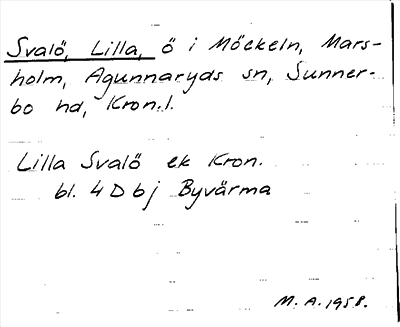 Svalö, Lilla, ö i Möckeln, Mars-
holm, Agunnaryds sn, Sunner-
bo hd, Kron.l.
Lilla Svalö ek Kron.
bl. 4 D b j Byvärma
M. A. 1958.